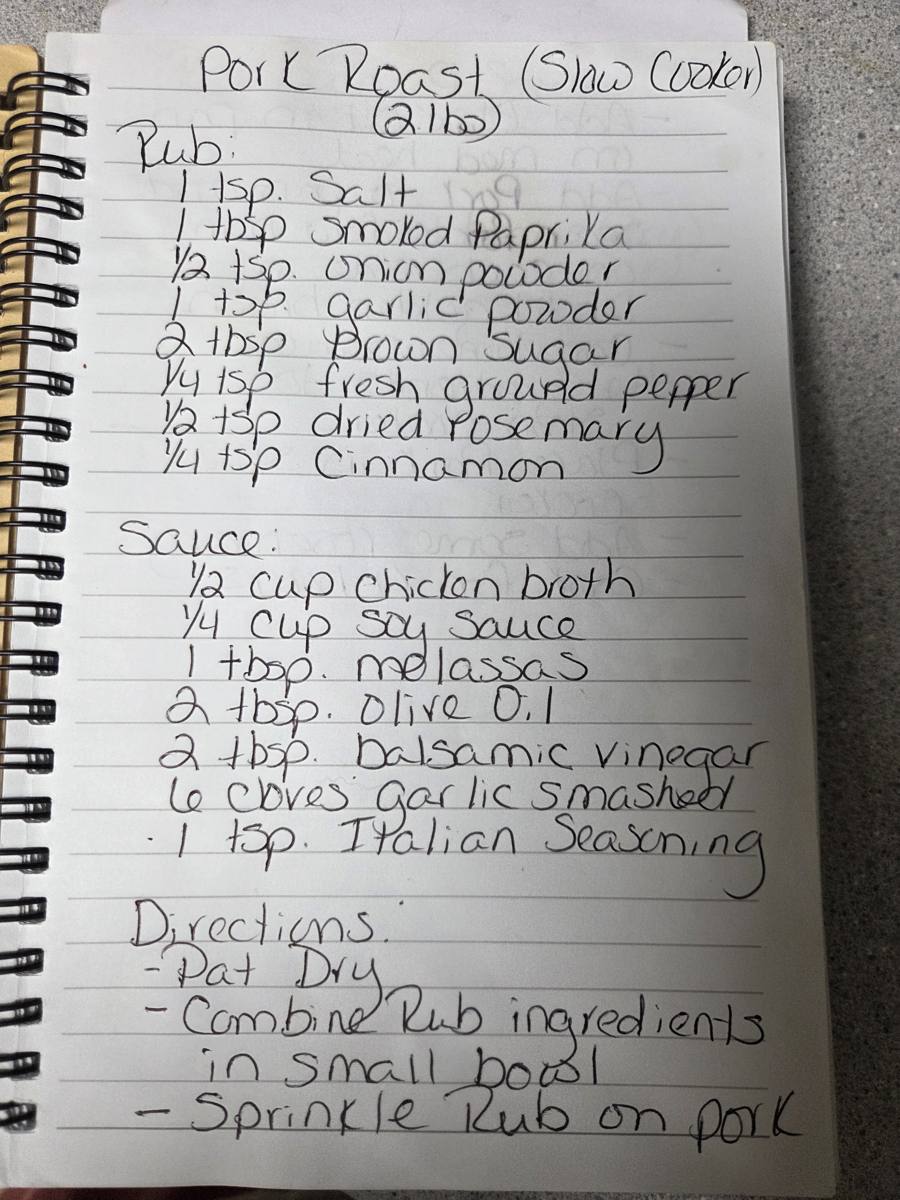 Pork Roast (Slow Cooker)
(2 lbs)
Rub:
1 tsp. Salt
1 tbsp Smoked Paprika
1/2 tsp. onion powder
1 tsp. garlic powder
2 tbsp Brown Sugar
1/4 tsp fresh ground pepper
1/2 tsp dried rosemary
1/4 tsp Cinnamon
Sauce:
1/2 cup chicken broth
1/4 cup soy sauce
1 tbsp. molassas
2 tbsp. olive Oil
2 tbsp. balsamic vinegar
6 cloves garlic smashed
1 tsp. Italian Seasoning
Directions:
- Pat Dry
- Combine Rub ingredients
in small bowl
- Sprinkle Rub on pork